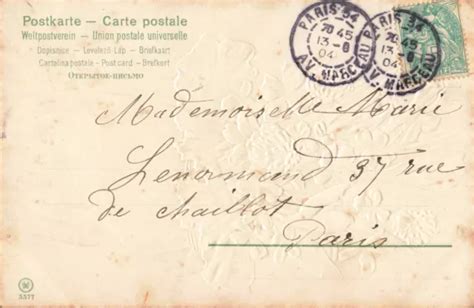 Postkarte – Carte postale
Weltpostverein – Union postale universelle
Dopisnice – Levelező Lap – Briefkaart
Cartolina postale – Post card – Brefkort
Открытое письмо
PARIS 34
20 45
13 - 8
04
AV. MARCEAU
PARIS 34
20 45
13 - 8
04
AV. MARCEAU
Mademoiselle Marie
Lenormand 37 rue
de Chaillot
Paris
5577